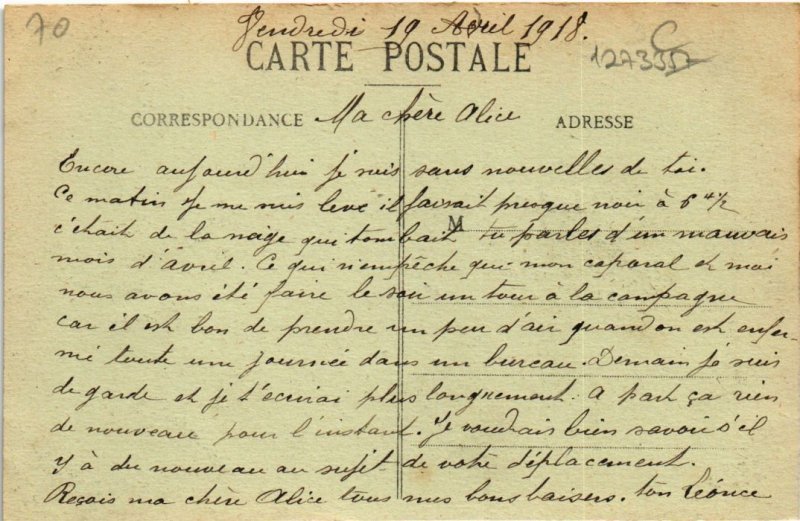 70
Vendredi 19 Avril 1918.
CARTE POSTALE
CORRESPONDANCE Ma chère Alice ADRESSE
Encore aujourd'hui je suis sans nouvelles de toi.
Ce matin je me suis levé il faisait presque noir à 6 h 1/2
M
c'était de la neige qui tombait tu parles d'un mauvais
mois d'avril. Ce qui n'empêche que mon caporal et moi
nous avons été faire le soir un tour à la campagne
car il est bon de prendre un peu d'air quand on est enfer-
mé toute une journée dans un bureau. Demain je suis
de garde et je t'écrirai plus longuement. A part ça rien
de nouveau pour l'instant. Je voudrais bien savoir s'il
y à du nouveau au sujet de votre déplacement.
Reçois ma chère Alice tous mes bons baisers. ton Léonce